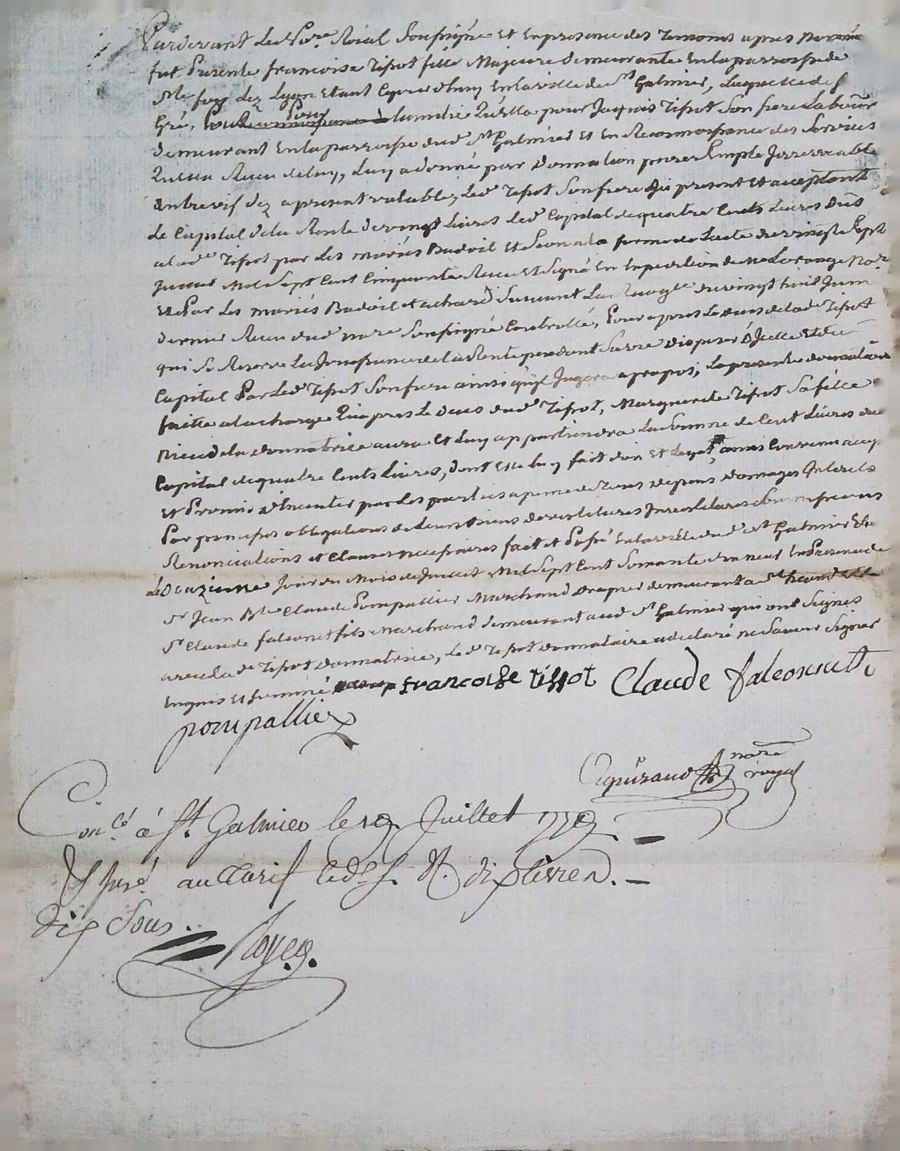 Pardevant le No.re Roial soussigné et En presance des Temoins apres Nommés
fut Presente francoise Tissot fille Majeure demeurante En la parroisse de
Ste foy lez Lyon Etant Ce jourdhuy En la ville de St Galmier, Laquelle de
Gré, pour lamitié Quella pour Jaques Tissot Son frere Laboureur
demeurant En la parroisse dud. St Galmier et en Reconnoissance des Services
Quella Recu de luy, Luy a donné par donnation pure simple Irrevocable
Entrevifs dez a present valable, led. Tissot Son frere Icy present et acceptant
le Capital de la Rente de vingt Livres led. Capital de quatre Cents Livres dus
a lade. Tissot par les mariés Badoil et a la forme de Lacte du vingt Sept
Mil Sept Cent Cinquante Recu et Signé En Expedition de Me No.re
Et Par les mariés Badoil et achard Suivant La du vingt huit Juin
dernier Recu dud. no.re Soussigné Controllé, Pour apres le deces de lad. Tissot
qui Se Reserve La Jouissance de la Rente pendant Sa vie disposer d'Icelle et du
Capital Par led. Tissot Son frere ainsi quil Jugera apropos, La presente donnation
faitte a la charge Quapres le deces dud. Tissot, Marguerite Tissot Sa fille
Niece de la donnatrice aura Et Luy appartiendra La Somme de Cent Livres du
Capital de quatre Cents Livres, dont Elle luy fait don Et Legat, ainsi Convenu accepté
Et Promis par les parties a peine de Tous depens domages Interets
Par promesses obligations de leurs biens
Renonciations et Clauses necessaires fait et Passé En la ville dud. St Galmier Le
douzieme Jour du Mois de Juillet Mil Sept Cent Soixante dix neuf En Presence de
Sr Jean Bte Claude Pompallier Marchand Drapier demeurant a St
Sr Claude falconet fils Marchand demeurant aud. St Galmier qui ont Signés
avec lad. Tissot donnatrice, Led. Tissot donnataire a declaré ne Savoir Signer
Enquis et Sommé francoise tissot Claude falconnet
pompallier
no.re royal
Con.lé à St. Galmier le 19. Juillet 1779.
au Tarif led. S. R. dix livres.
dix Sous.
Royer.